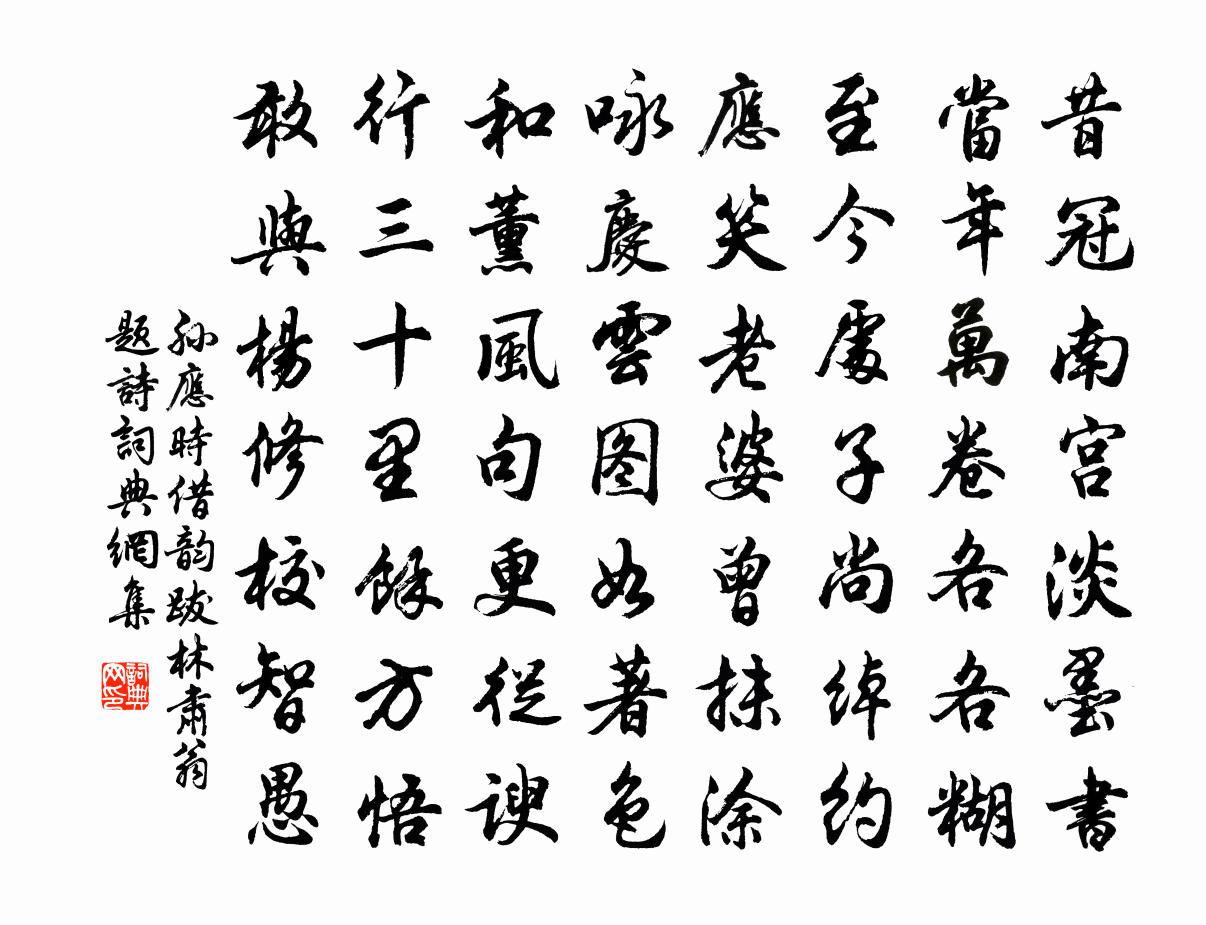 昔冠南宫淡墨書
當年萬卷各各糊
至今處子尚綽約
應笑老婆曾抹涂
咏慶雲图如著色
和薰風句更從諛
行三十里餘方悟
敢與楊修校智愚
孙應時借韵跋林肅翁
题詩詞典網集
詞典网印